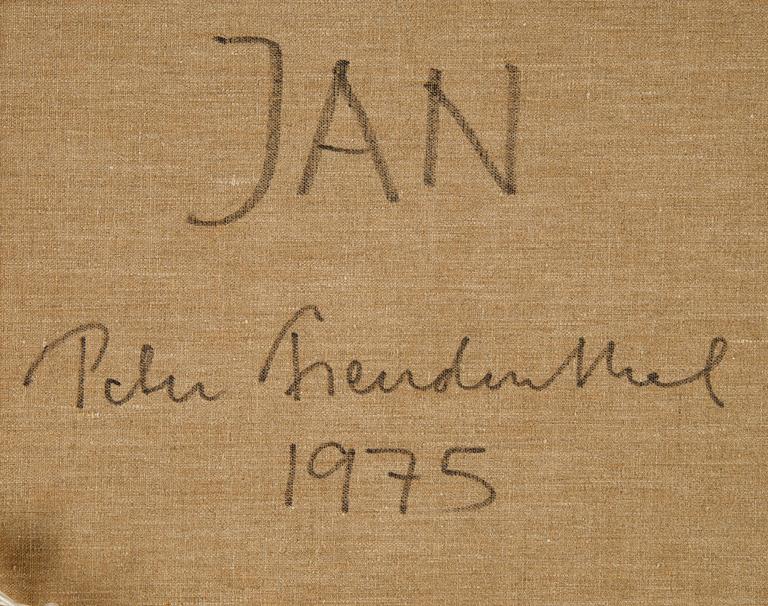 JAN
Peter Freudenthal
1975